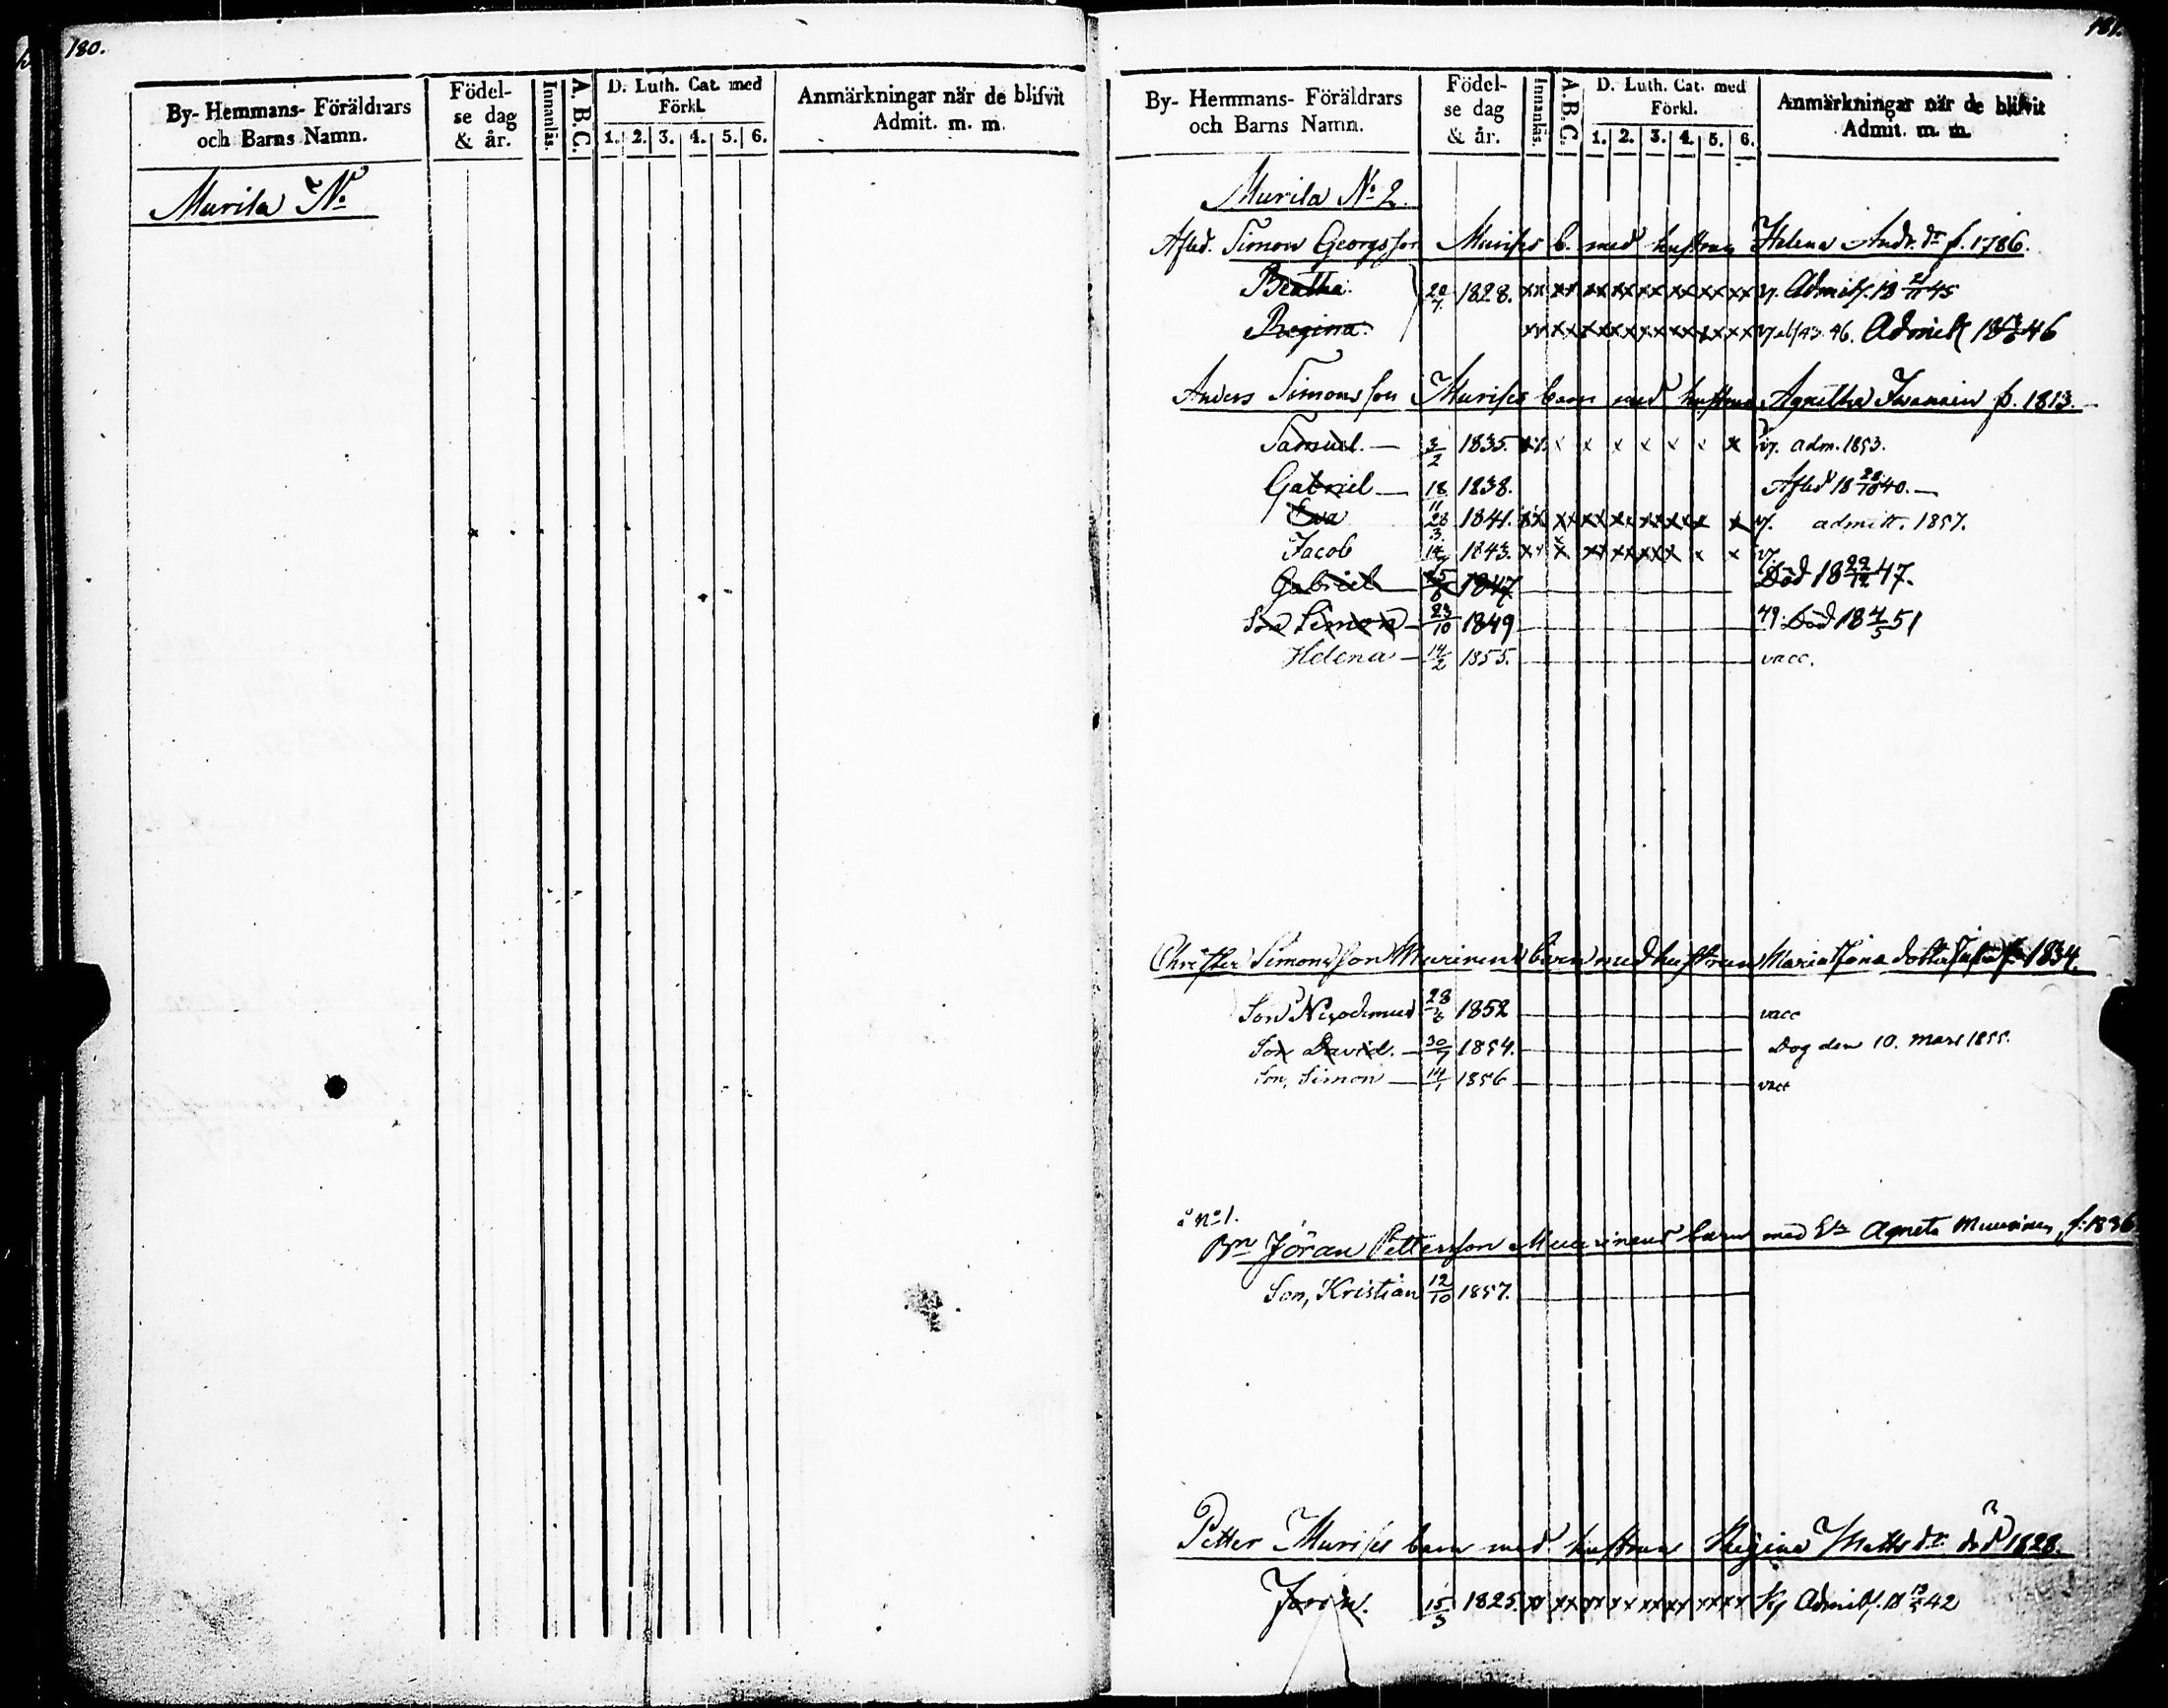 180.
By- Hemmans- Föräldrars och Barns Namn.
Födel- se dag & år.
Innanläs.
A. B. C.
D. Luth. Cat. med Förkl.
1. 2. 3. 4. 5. 6.
Anmärkningar när de blifvit Admit. m. m.
Murila No
181.
By- Hemmans- Föräldrars och Barns Namn.
Födel- se dag & år.
Innanläs.
A. B. C.
D. Luth. Cat. med Förkl.
1. 2. 3. 4. 5. 6.
Anmärkningar när de blifvit Admit. m. m.
Murila No 2.
Afled. Simon Georgsson Murises b. med hustrun Helena Andr. dr f. 1786.
Beatha 1828. xx xx xx xx xx xx xx xx
Regina xx xx xx xx xx xx xx xx
Anders Simonsson Murises barn med hustrun Agnetha f. 1813.
Samuel. — 3/2 1835. x x x x x x adm. 1853.
Gabriel — 18/11 1838. Afled 18 40. —
Eva 28/3 1841. admitt. 1857.
Jacob 1843.
Gabriel 1847 Död 18 29/12 47.
Son Simon — 23/10 1849 Död 18 4/5 51
Helena — 14/2 1855. vacc.
Christer Simonsson Murinens barn med hustrun Maria 1834.
Son Nicodemus 28 1852 vacc
Son David. — 30/7 1854. Dog den 10. Mars 1855.
Son, Simon — 14/1 1856 vacc
å No 1.
Jöran Pettersson Muurinens barn med Agneta Muurinen, f: 1836
Son, Kristian 12/10 1857.
Petter Murises barn med hustrun Regina Matts dr. död 1828.
15/3 1825. xx xx xx xx xx xx xx xx 42